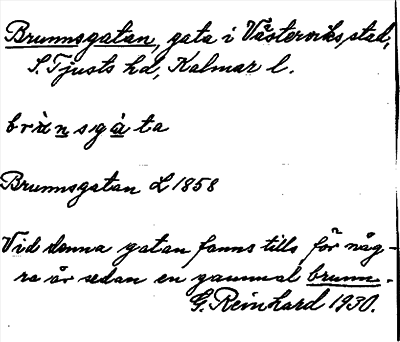 Brunnsgatan, gata i Västerviks stad,
S. Tjusts hd, Kalmar l.
brùnsgàta
Brunnsgatan L 1858
Vid denna gatan fanns tills för någ-
ra år sedan en gammal brunn.
G. Reinhard 1930.